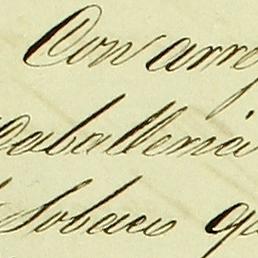 Con arre
Caballeria
Sobaco qu